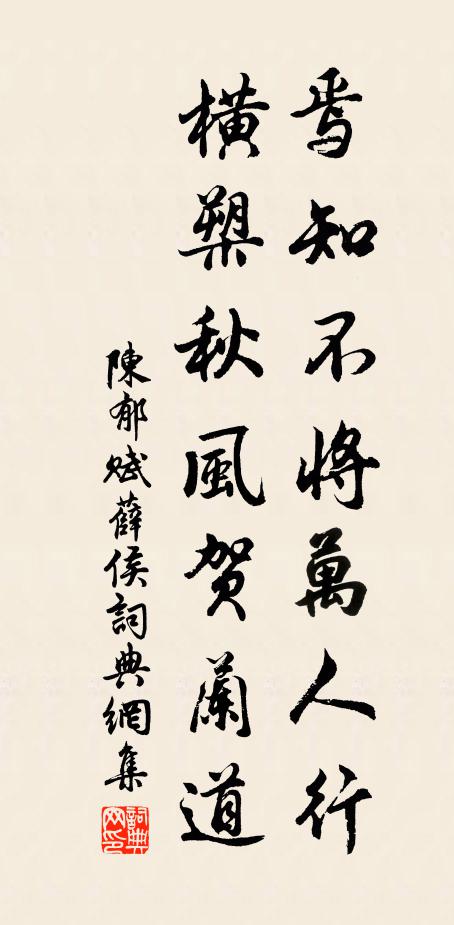 焉知不將萬人行
橫槊秋風賀蘭道
陳郁賦薛侯詞典網集
詞典网印